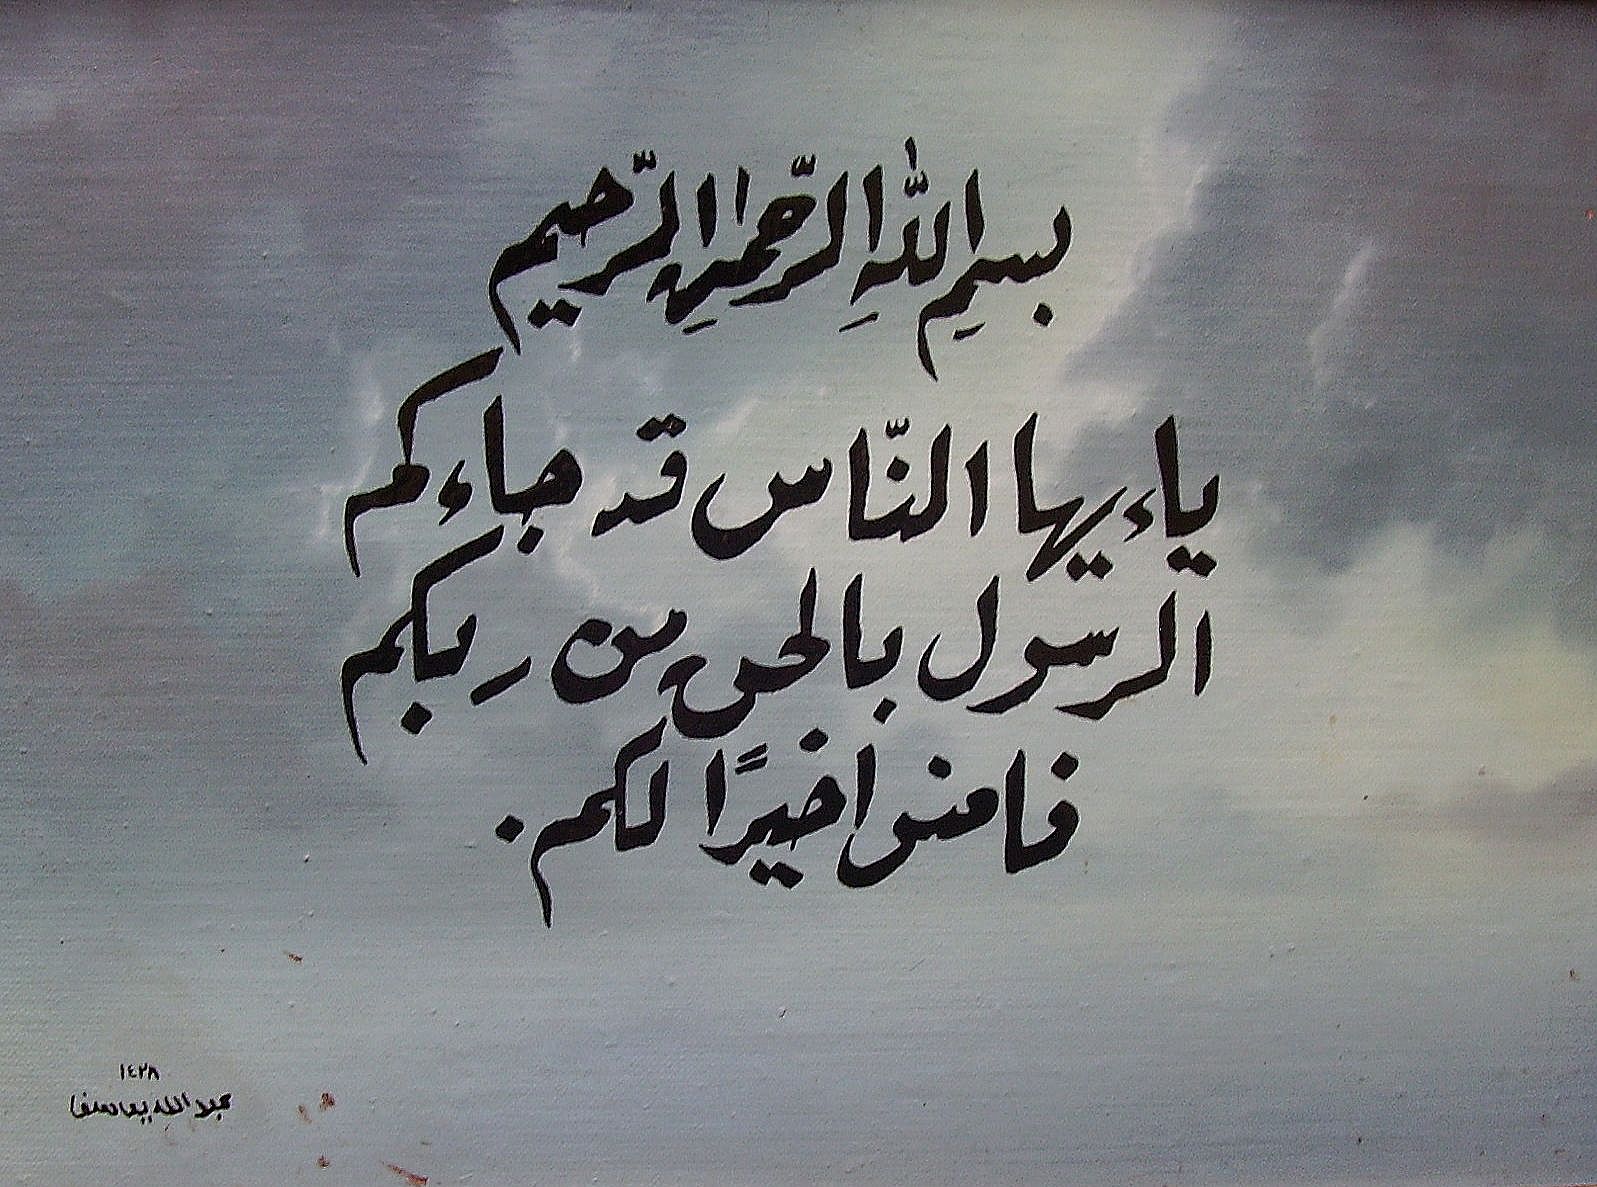 بسم اللّهِ الرّحمٰنِ الرّحيم
ياءيها النّاس قد جاءكم
الرسول بالحق من ربكم
فامنوا خيرًا لكم.
١٤٢٨
عبد الله